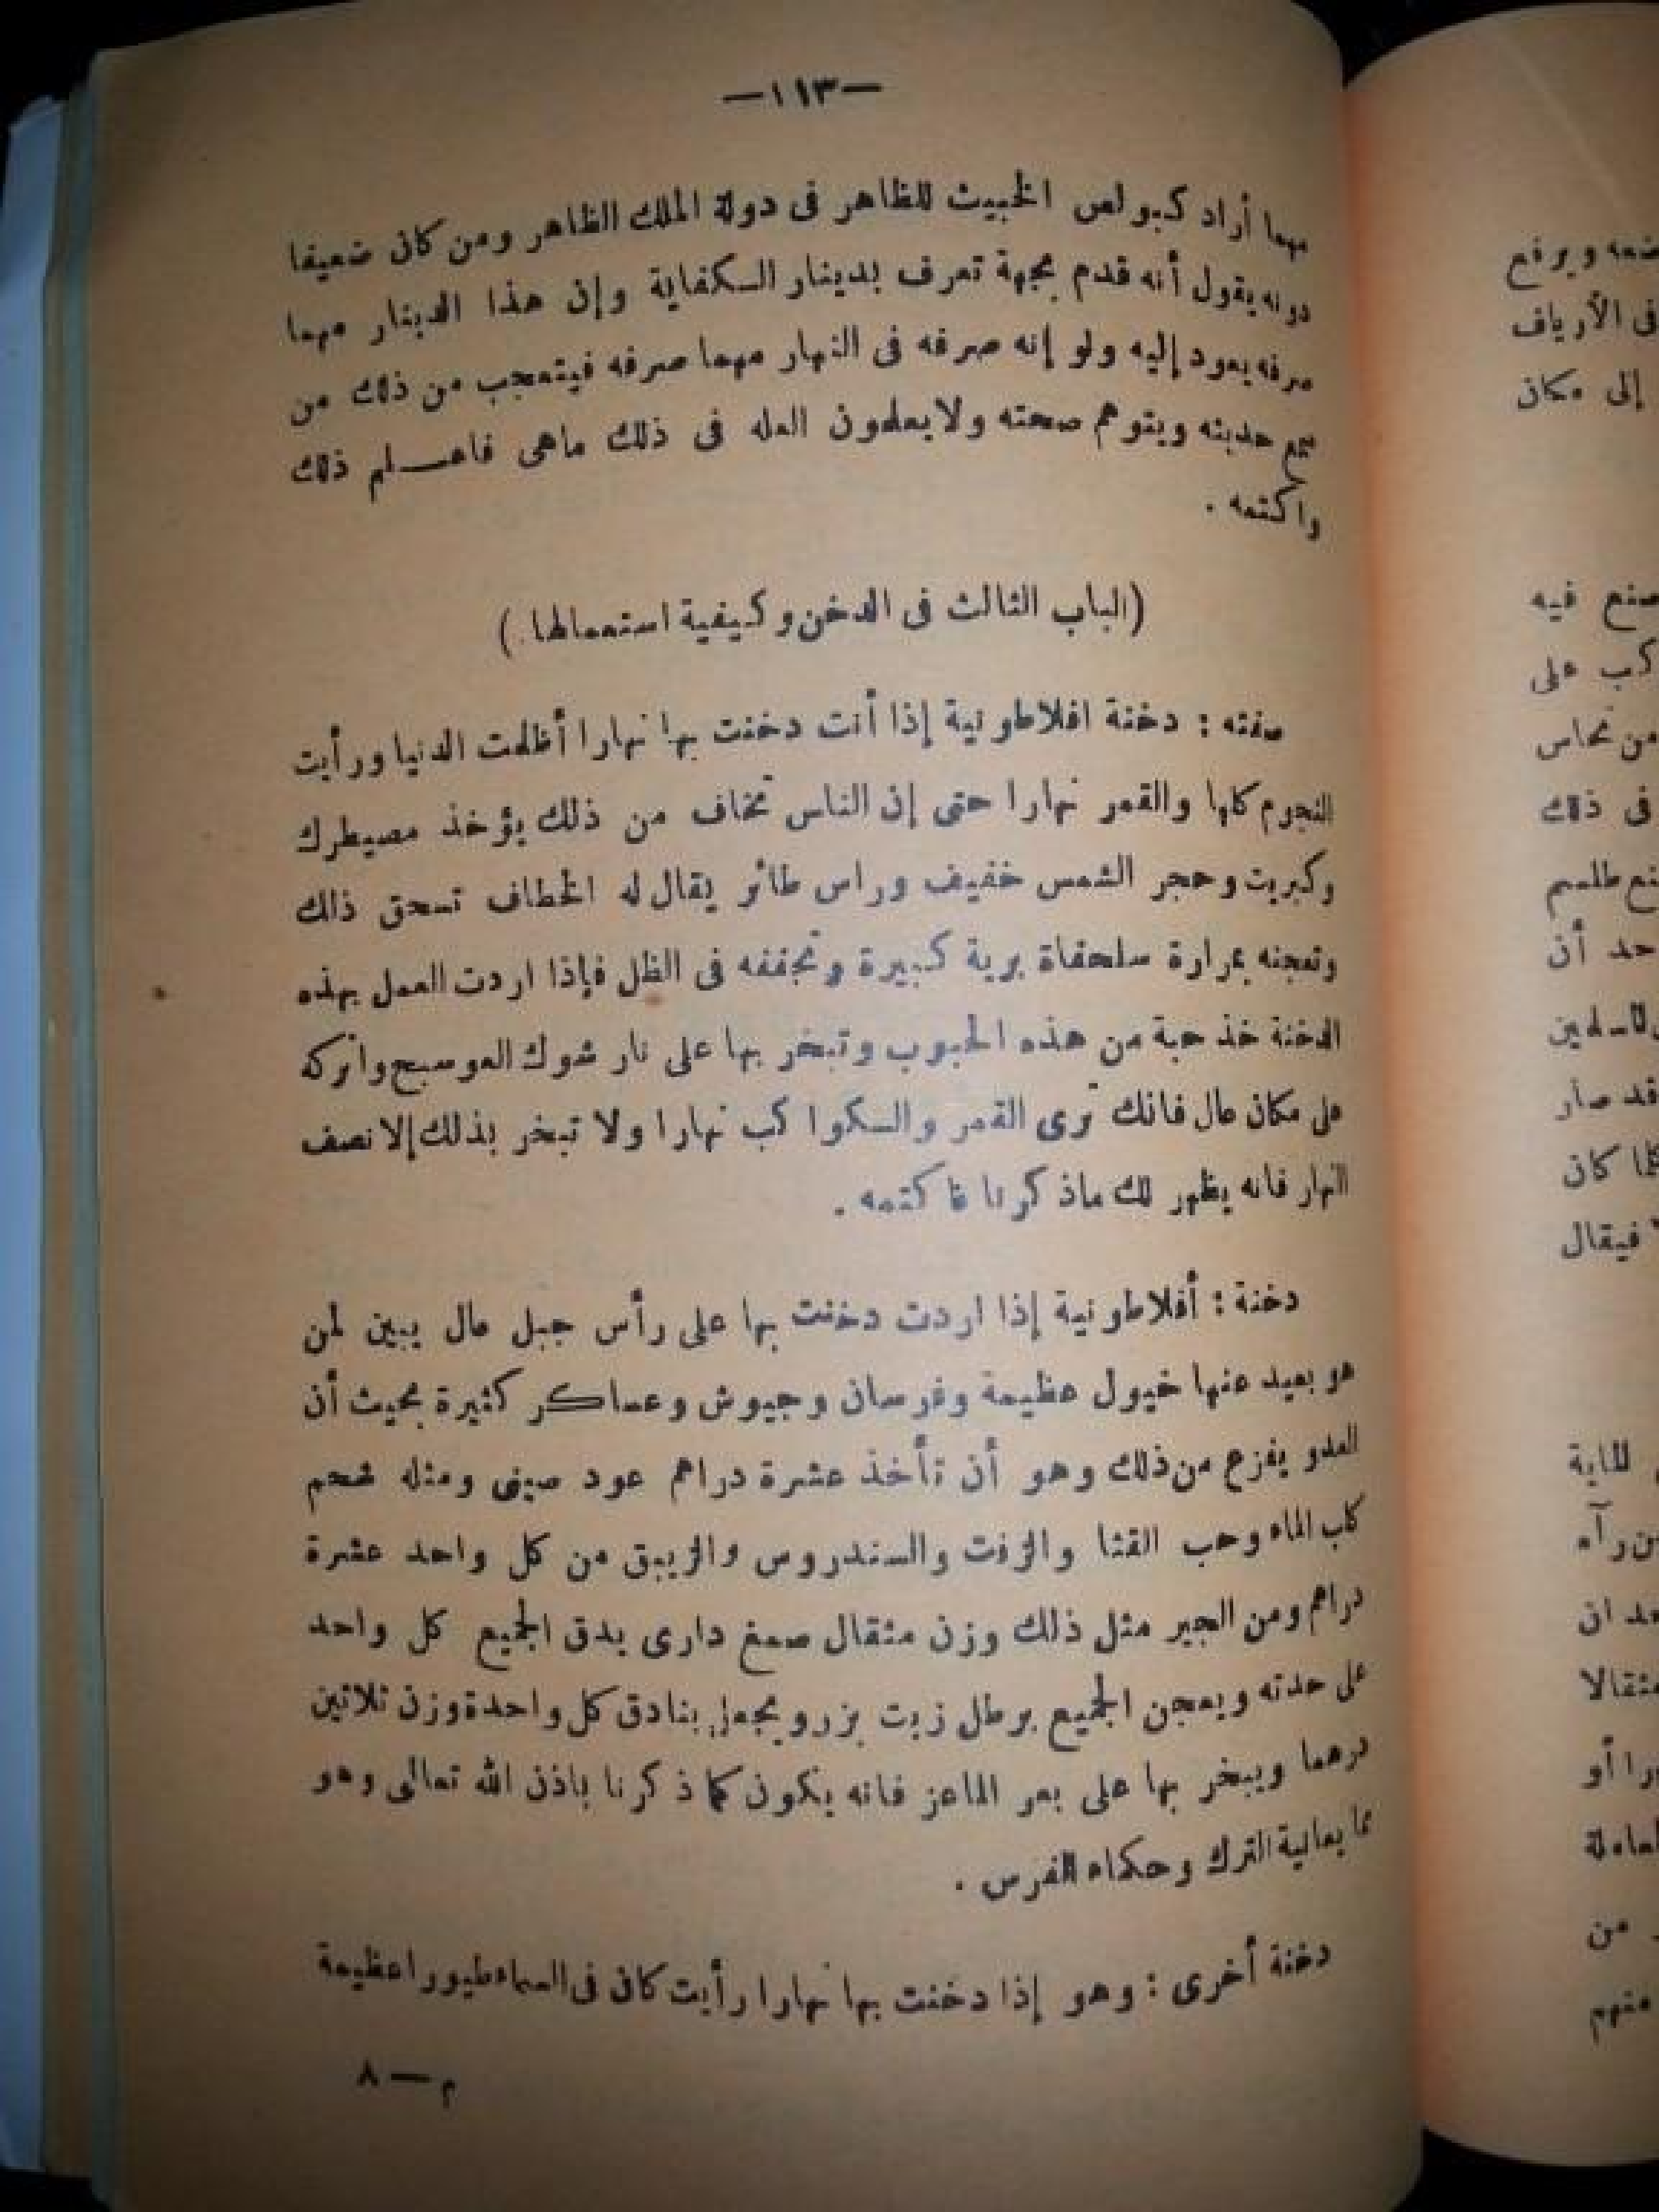 —١١٣—
مهما أراد كبولص الخبيث للظاهر فى دولة الملك الظاهر ومن كان ضعيفا
دونه يقول أنه قدم بجهة تعرف بدينار السكفاية وإن هذا الدينار مهما
صرفه يعود إليه ولو إنه صرفه فى النهار مهما صرفه فيتعجب من ذلك من
سمع حديثه ويتوهم صحته ولا يعلمون العله فى ذلك ماهى فاعـــلم ذلك
واكتمه .
(الباب الثالث فى الدخن وكيفية استعمالها.)
صفته : دخنة افلاطونية إذا أنت دخنت بها نهارا أظلمت الدنيا ورأيت
النجوم كلها والقمر نهارا حتى إن الناس تخاف من ذلك يؤخذ مصيطرك
وكبريت وحجر الشمس خفيف وراس طائر يقال له الخطاف تسحق ذلك
وتعجنه بمرارة سلحفاة برية كبيرة وتجففه فى الظل فإذا اردت العمل بهذه
الدخنة خذ حبة من هذه الحبوب وتبخر بها على نار شوك العوسج واتركه
على مكان عال فانك ترى القمر والسكواكب نهارا ولا تبخر بذلك إلا نصف
النهار فانه يظهر لك ماذكرنا فاكتمه .
دخنة : أفلاطونية إذا اردت دخنت بها على رأس جبل عال يبين لمن
هو بعيد عنها خيول عظيمة وفرسان وجيوش وعساكر كثيرة بحيث أن
العدو يفزع من ذلك وهو أن تأخذ عشرة دراهم عود صينى ومثله شحم
كلب الماء وحب القثا والزفت والسندروس والزيبق من كل واحد عشرة
دراهم ومن الجير مثل ذلك وزن مثقال صمغ دارى يدق الجميع كل واحد
على حدته ويعجن الجميع برطل زيت بزر ويجعل بنادق كل واحدة وزن ثلاثين
درهما ويبخر بها على بعر الماعز فانه يكون كما ذكرنا باذن الله تعالى وهو
مما يعالية الترك وحكماء الفرس .
دخنة أخرى : وهو إذا دخنت بها نهارا رأيت كان فى السماء طيورا عظيمة
م — ٨
ضعه ويرفع
فى الأرياف
إلى مكان
صنع فيه
كب على
من نحاس
فى ذلك
حد أن
قد صار
كلما كان
فيقال
من رآه
مثقالا
من
منهم